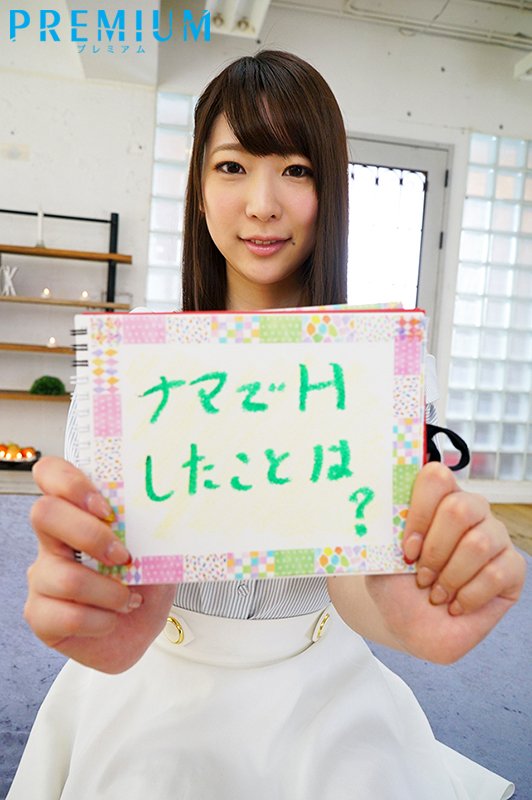 PREMIUM
プレミアム
ナマでH
したことは
?